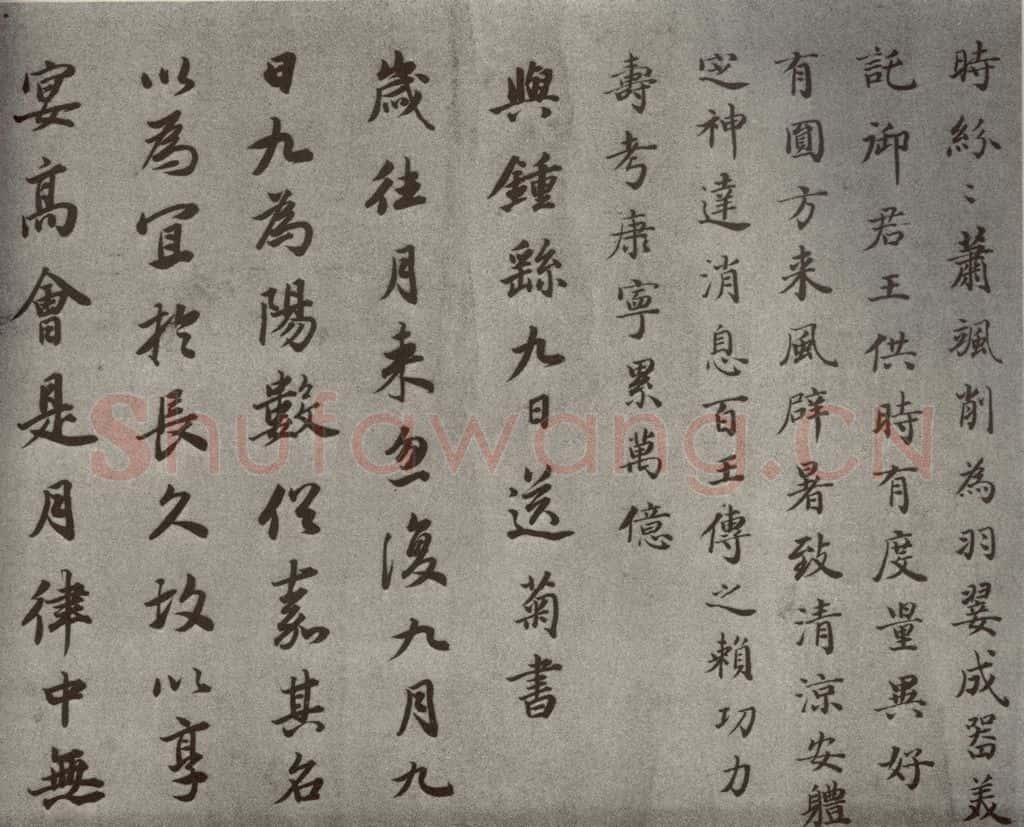 時紛〻蕭颯削為羽翣成器美
託御君王供時有度量異好
有圓方来風辟暑致清涼安體
定神達消息百王傳之賴功力
壽考康寧累萬億
與鍾繇九日送菊書
歲往月来忽復九月九
日九為陽數俗嘉其名
以為宜於長久故以享
宴髙會是月律中無
Shufawang.CN